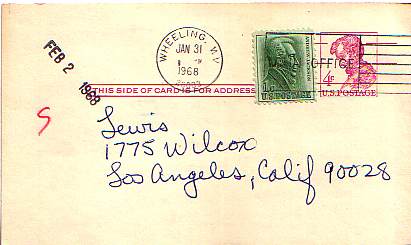 FEB 2 1968
WHEELING, W.V.
JAN 31
1968
POST OFFICE
THIS SIDE OF CARD IS FOR ADDRESS
1¢
U.S. POSTAGE
4¢
U.S. POSTAGE
S
Lewis
1775 Wilcox
Los Angeles, Calif 90028